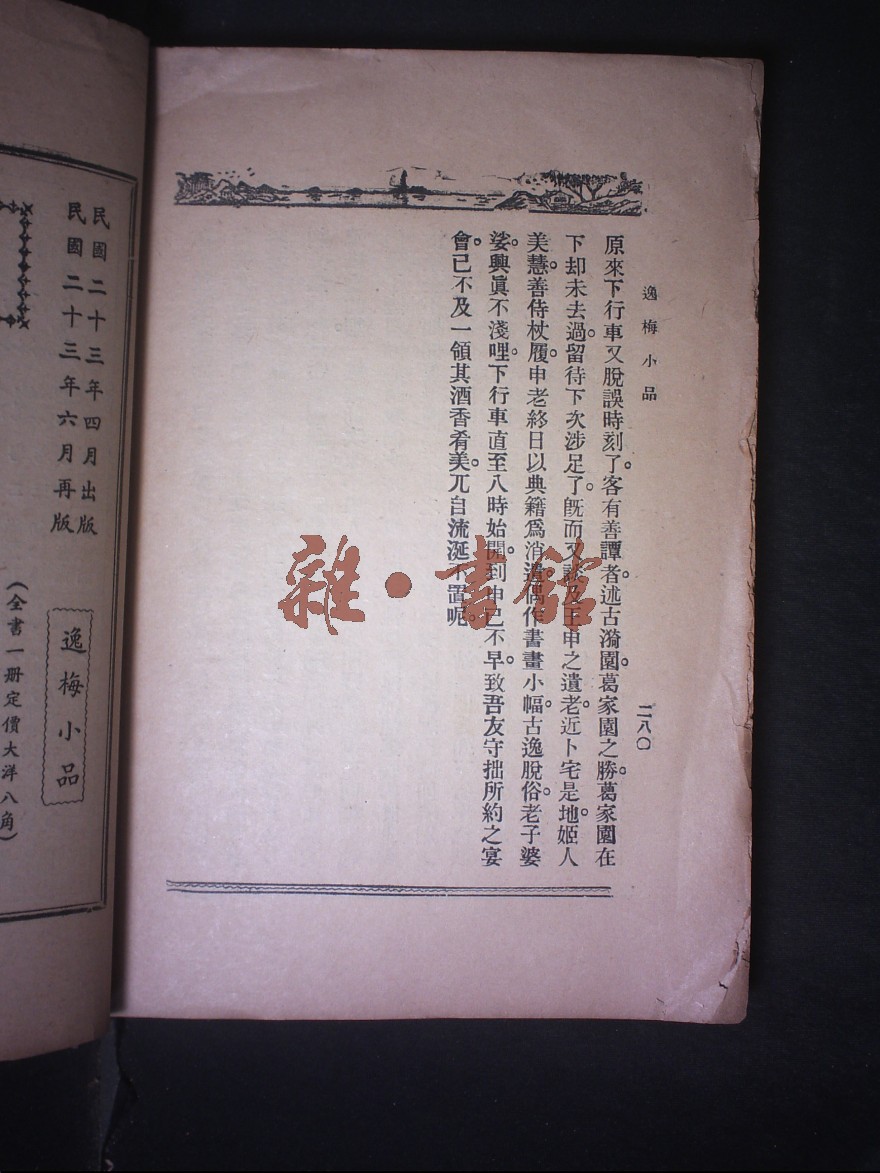 逸梅小品
二八〇
原來下行車又脫誤時刻了。客有善譚者。述古漪園。葛家園之勝。葛家園在
下却未去過。留待下次涉足了。旣而又談及王申之遺老。近卜宅是地。姬人
美慧。善侍杖履。申老終日以典籍爲消遣。偶作書畫小幅。古逸脫俗。老子婆
娑。興眞不淺哩。下行車直至八時始開。到申已不早。致吾友守拙所約之宴
會。已不及一領其酒香肴美。兀自流涎不置呢。
雜·書館
民國二十三年四月出版
民國二十三年六月再版
逸梅小品
(全書一册定價大洋八角)